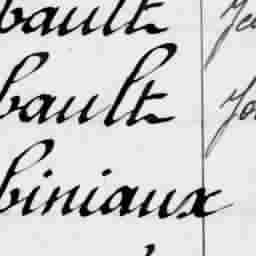 bault
bault
biniaux